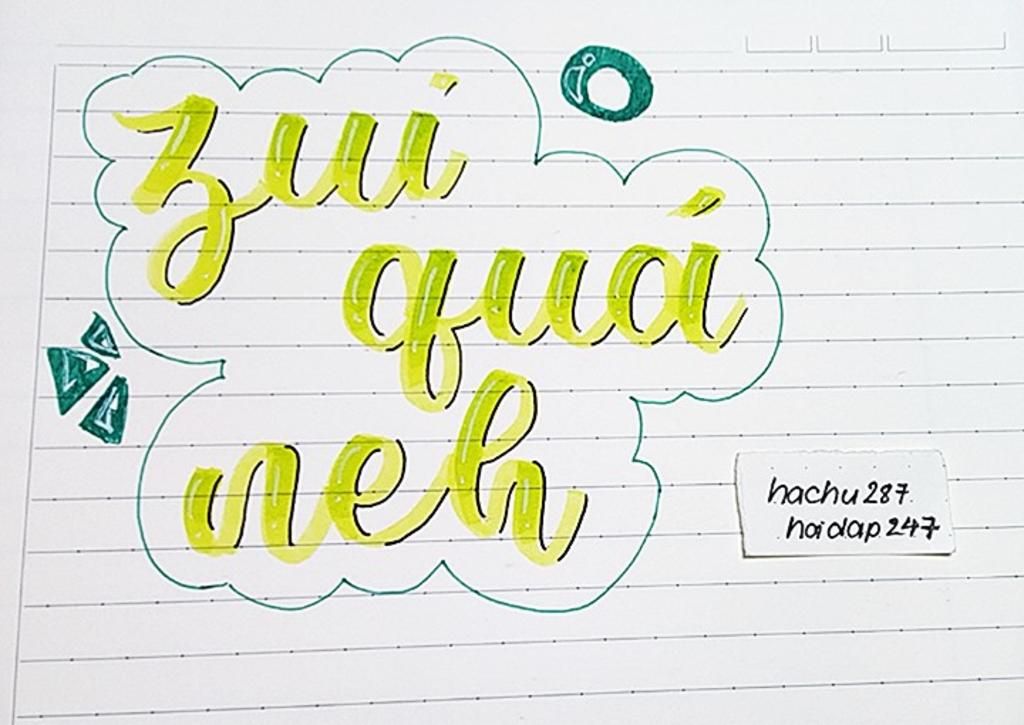 zui
quá
neh
hachu287
hoidap247